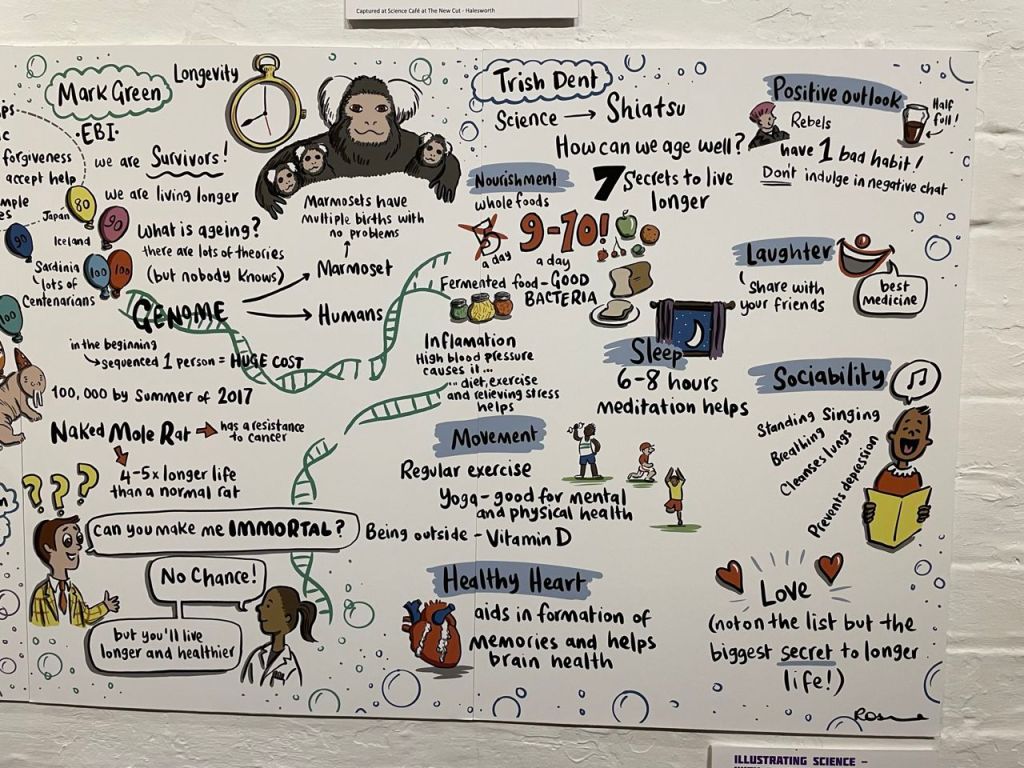 Captured at Science Café at The New Cut - Halesworth
Mark Green
·EBI·
Longevity
forgiveness
accept help
Japan
80
90
Iceland
90
Sardinia
lots of
Centenarians
100
100
100
we are Survivors!
we are living longer
What is ageing?
there are lots of theories
(but nobody knows)
Marmosets have
multiple births with
no problems
Marmoset
GENOME
Humans
in the beginning
sequenced 1 person = HUGE COST
100,000 by Summer of 2017
Naked Mole Rat
has a resistance
to cancer
4-5x longer life
than a normal rat
???
can you make me IMMORTAL?
No Chance!
but you'll live
longer and healthier
Trish Dent
Science → Shiatsu
How can we age well?
7 Secrets to live
longer
Nourishment
whole foods
5
a day
9-10!
a day
Fermented food - GOOD
BACTERIA
Inflamation
High blood pressure
causes it...
...diet, exercise
and relieving stress
helps
Sleep
6-8 hours
meditation helps
Movement
Regular exercise
Yoga - good for mental
and physical health
Being outside - Vitamin D
Healthy Heart
aids in formation of
memories and helps
brain health
Positive outlook
Half
full!
Rebels
have 1 bad habit!
Don't indulge in negative chat
Laughter
share with
your friends
best
medicine
Sociability
Standing Singing
Breathing
Cleanses lungs
Prevents depression
Love
(not on the list but the
biggest secret to longer
life!)
ILLUSTRATING SCIENCE –